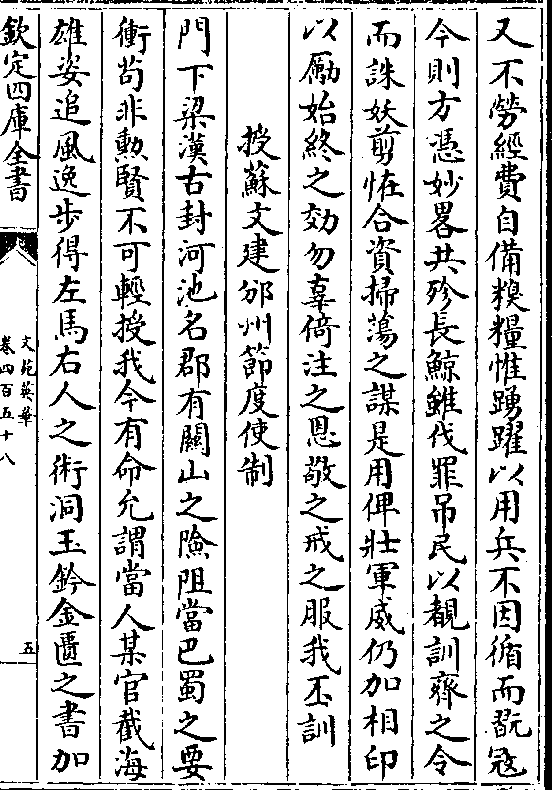 又不勞經費自備糗糧惟踴躍以用兵不因循而翫寇
今則方憑妙畧共殄長鯨雖伐罪吊民以覩訓齊之令
而誅妖剪恠合資掃蕩之謀是用俾壯軍威仍加相印
以勵始終之効勿辜倚注之恩敬之戒之服我丕訓
授蘇文建邠州節度使制
門下梁漢古封河池名郡有關山之險阻當巴蜀之要
衝苟非勲賢不可輕授我今有命允謂當人某官截海
雄姿追風逸步得左馬右人之術洞玉鈐金匱之書加
欽定四庫全書
文苑英華
卷四百五十八
五